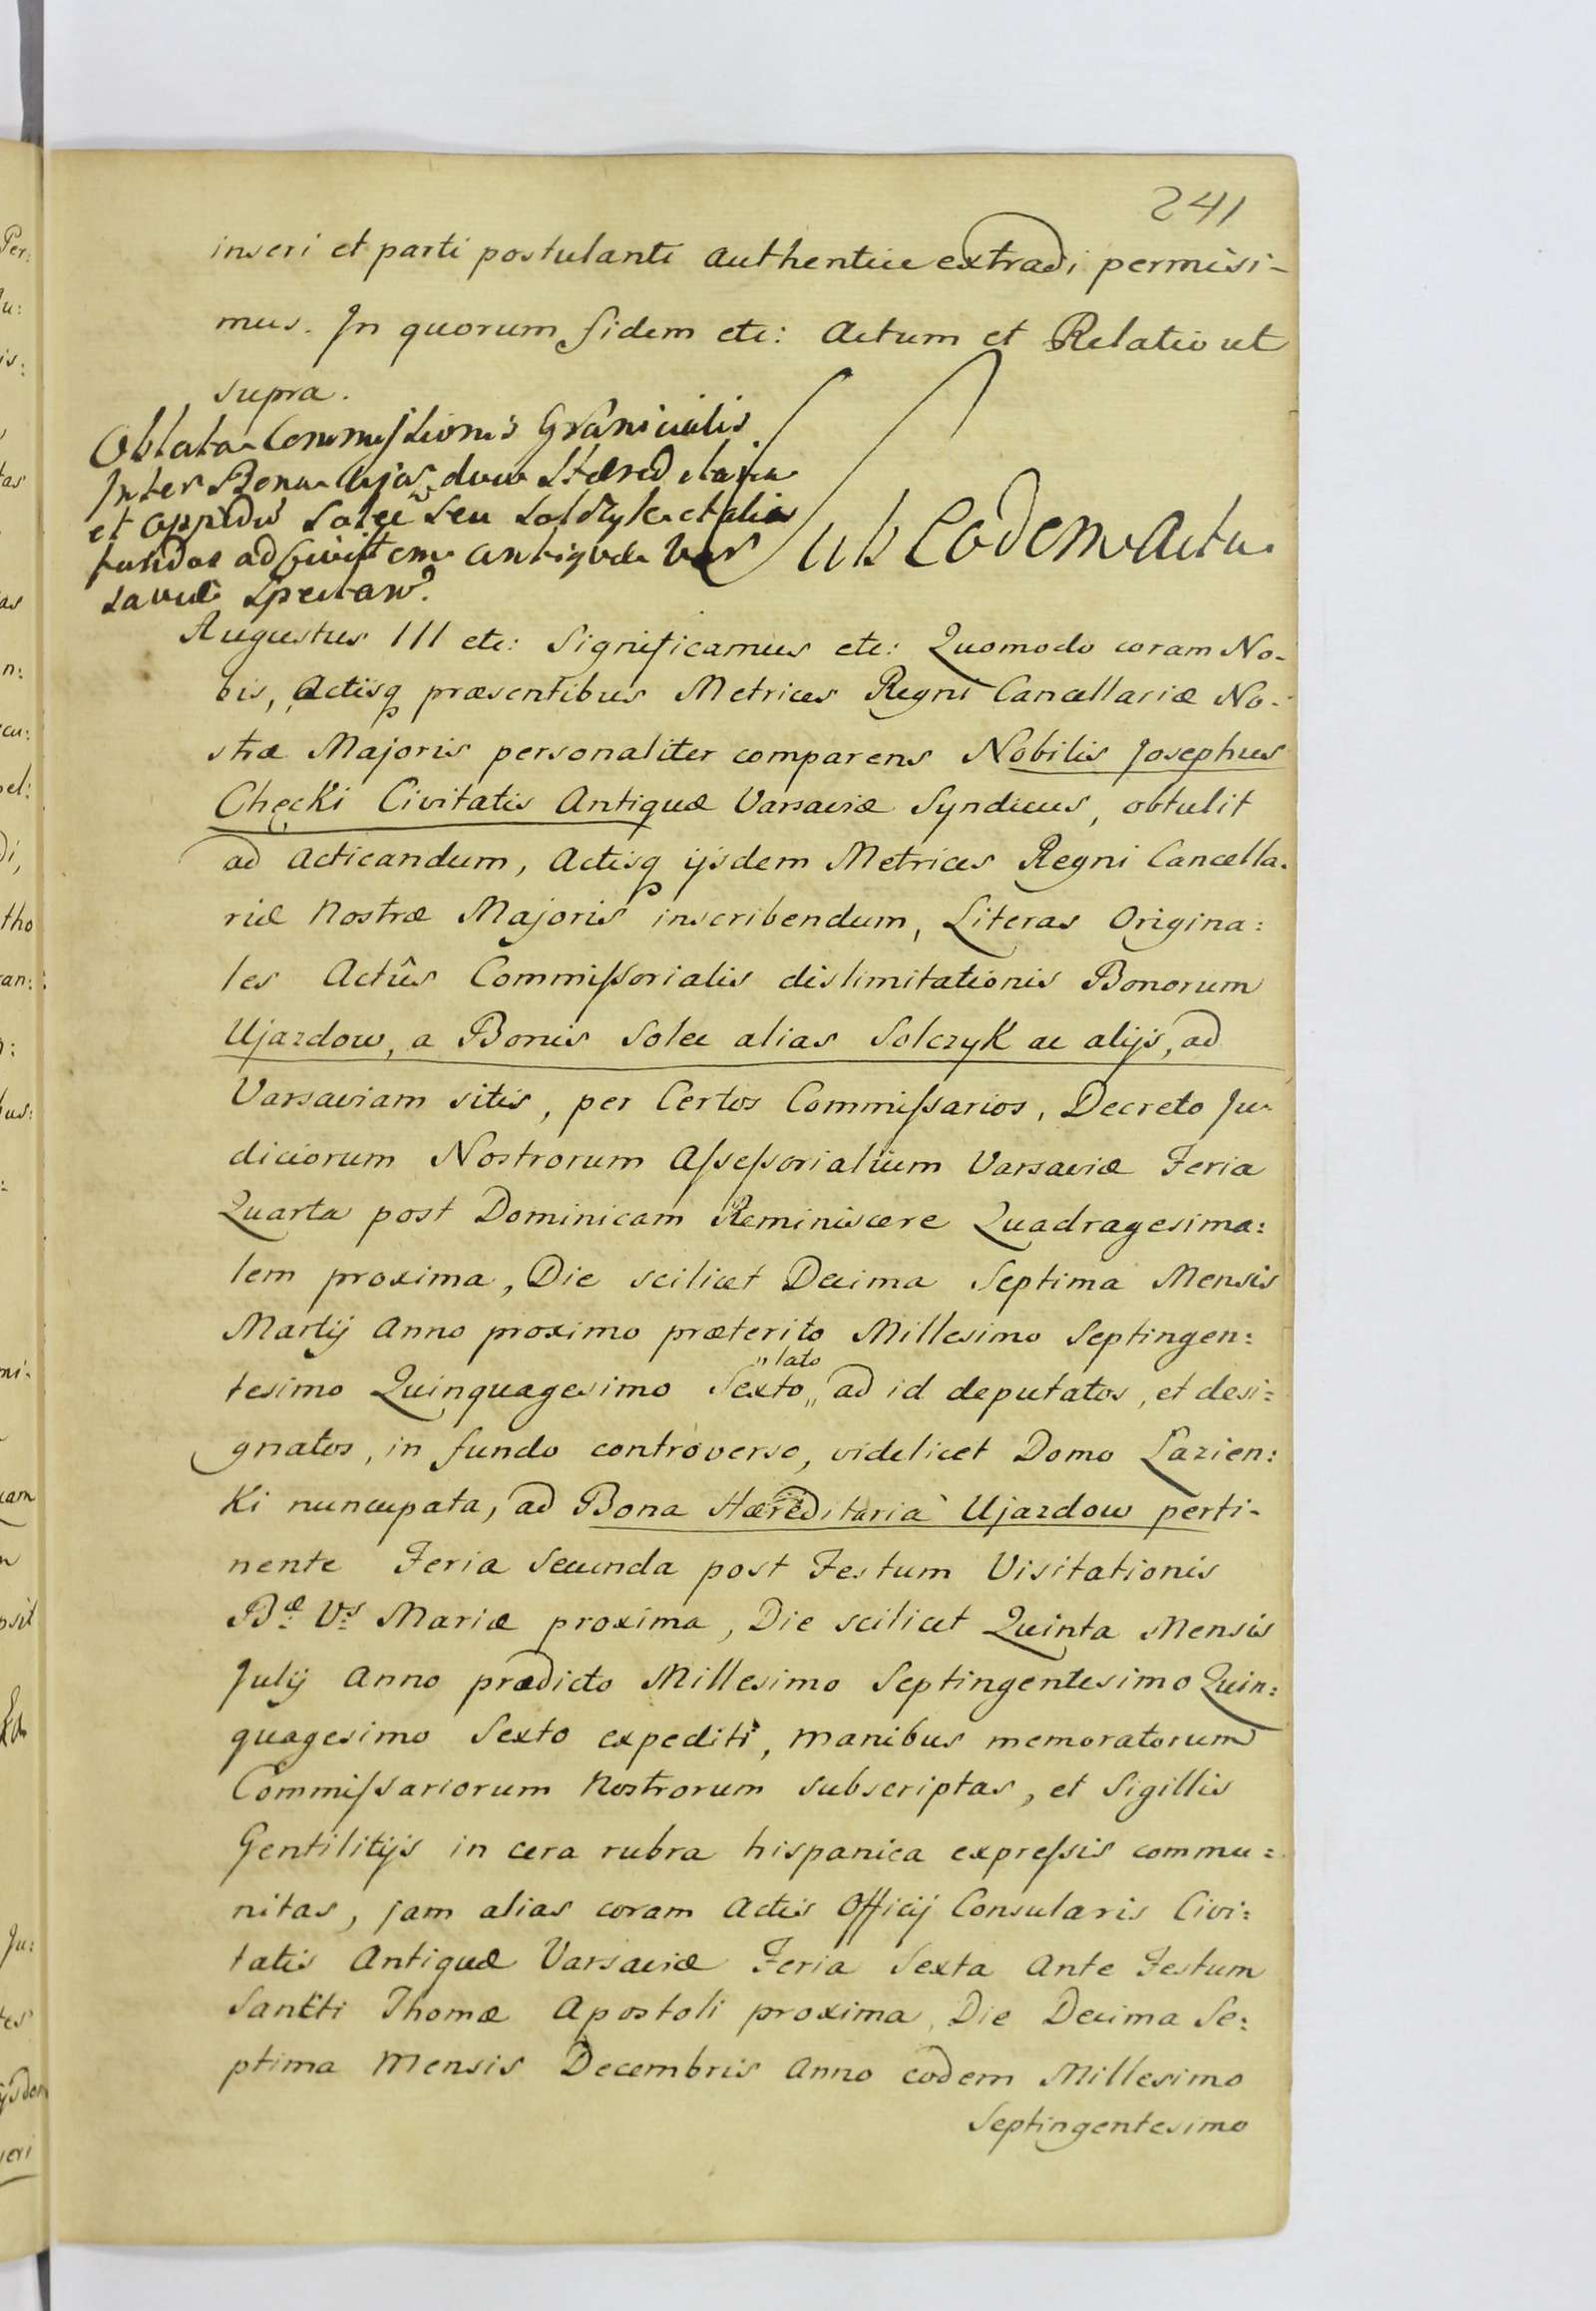 241
inseri et parti postulanti authentice extradi permisi-
mus. In quorum fidem etc: Actum et Relatio ut
supra.
Oblata Commissionis Granicialis
Inter Bona Ujazdow Hæreditaria
et oppidū Solec seu Solczyk et alia
fundos ad Civitatem antiquæ Var
saviæ spectan?
Sub Eodem Actu.
Augustus III etc: Significamus etc: Quomodo coram No-
bis, Actisq præsentibus Metrices Regni Cancellariæ No-
stræ Majoris personaliter comparens Nobilis Josephus
Chęcki Civitatis Antiquæ Varsaviæ Syndicus, obtulit
ad acticandum, Actisq ijsdem Metrices Regni Cancella-
riæ Nostræ Majoris inscribendum, Literas Origina:
les Actûs Commissorialis dislimitationis Bonorum
Ujazdow, a Bonis Solec alias Solczyk ac alijs, ad
Varsaviam sitis, per Certos Commissarios, Decreto Ju-
diciorum Nostrorum Assessorialium Varsaviæ Feria
Quarta post Dominicam Reminiscere Quadragesima:
lem proxima, Die scilicet Decima Septima Mensis
Martij Anno proximo præterito Millesimo Septingen:
tesimo Quinquagesimo Sexto,, ad id deputatos, et desi:
„lato
gnatos, in fundo controverso, videlicet Domo Lazien:
Ki nuncupata, ad Bona Hæreditaria Ujazdow perti-
nente Feria Secunda post Festum Visitationis
B.æ V.s Mariæ proxima, Die scilicet Quinta Mensis
Julij Anno prædicto Millesimo Septingentesimo Quin:
quagesimo Sexto expediti, manibus memoratorum
Commissariorum Nostrorum subscriptas, et Sigillis
Gentilitijs in cera rubra hispanica expressis commu:
nitas, jam alias coram Actis Officij Consularis Civi:
tatis Antiquæ Varsaviæ Feria Sexta Ante Festum
Sancti Thomæ Apostoli proxima, Die Decima Se:
ptima Mensis Decembris Anno eodem Millesimo
Septingentesimo